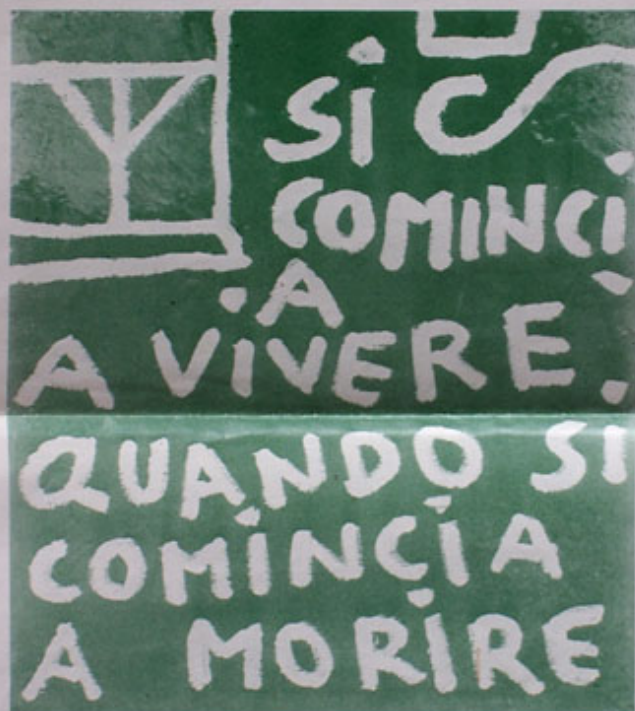 SI
COMINCI
A
A VIVERE.
QUANDO SI
COMINCIA
A MORIRE